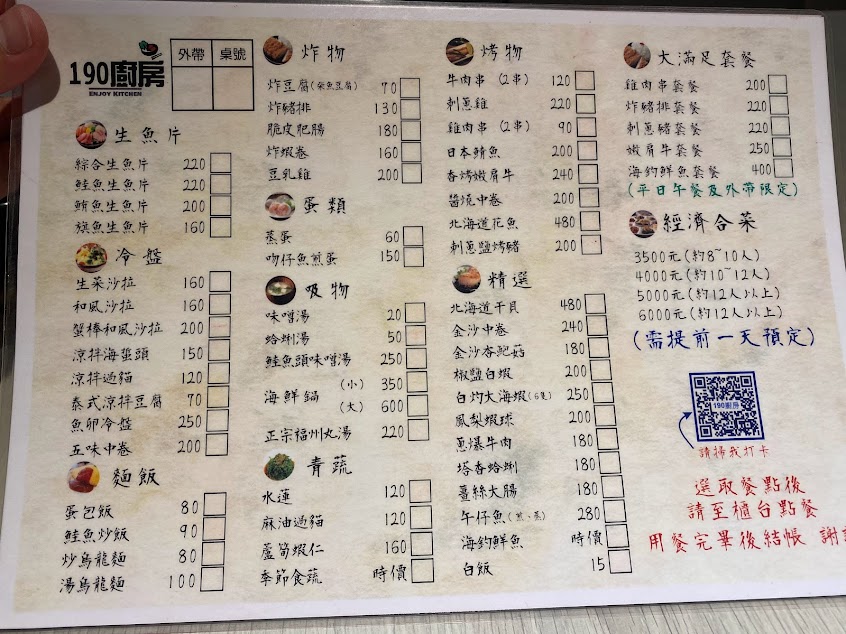 190廚房
ENJOY KITCHEN
外帶 桌號
生魚片
綜合生魚片 220
鮭魚生魚片 220
鮪魚生魚片 200
旗魚生魚片 160
冷盤
生菜沙拉 160
和風沙拉 160
蟹棒和風沙拉 200
涼拌海蜇頭 150
涼拌過貓 120
泰式涼拌豆腐 70
魚卵冷盤 250
五味中卷 200
麵飯
蛋包飯 80
鮭魚炒飯 90
炒烏龍麵 80
湯烏龍麵 100
炸物
炸豆腐(柴魚豆腐) 70
炸豬排 130
脆皮肥腸 180
炸蝦卷 160
豆乳雞 200
蛋類
蒸蛋 60
吻仔魚煎蛋 150
吸物
味噌湯 20
蛤蜊湯 50
鮭魚頭味噌湯 250
海鮮鍋 (小) 350
(大) 600
正宗福州丸湯 220
青蔬
水蓮 120
麻油過貓 120
蘆筍蝦仁 160
季節食蔬 時價
烤物
牛肉串(2串) 120
刺蔥雞 220
雞肉串(2串) 90
日本鯖魚 200
香烤嫩肩牛 240
醬燒中卷 200
北海道花魚 480
刺蔥鹽烤豬 200
精選
北海道干貝 480
金沙中卷 240
金沙杏鮑菇 180
椒鹽白蝦 200
白灼大海蝦(6隻) 250
鳳梨蝦球 200
蔥爆牛肉 180
塔香蛤蜊 180
薑絲大腸 180
午仔魚(煎、蒸) 280
海釣鮮魚 時價
白飯 15
大滿足套餐
雞肉串套餐 200
炸豬排套餐 220
刺蔥豬套餐 220
嫩肩牛套餐 250
海釣鮮魚套餐 400
(平日午餐及外帶限定)
經濟合菜
3500元(約8~10人)
4000元(約10~12人)
5000元(約12人以上)
6000元(約12人以上)
(需提前一天預定)
190廚房
請掃我打卡
選取餐點後
請至櫃台點餐
用餐完畢後結帳 謝